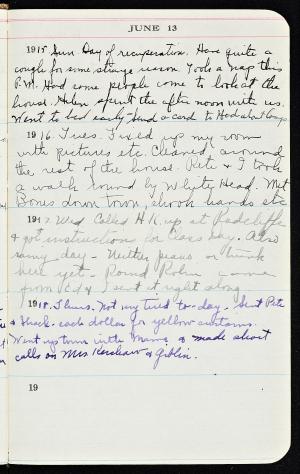 JUNE 13
1915 Sun. Day of recuperation. Have quite a
cough for some strange reason. Took a nap this
P.M. Had some people come to look at the
house. Helen spent the afternoon with us.
Went to bed early. Send a card to
1916. Tues. Fixed up my room
with pictures etc. Cleaned around
the rest of the house. Pete & I took
a walk around by White Head. Met
Bones down town, shook hands etc
1917 Wed. Called H.K. up at Radcliffe
& got instructions for Class Day. Also
rainy day - Neither piano or trunk
here yet - Round Robin came
from Ed & I sent it right along
1918. Thurs. Not very tired to-day - Sent Pete
& each dollar for yellow
Went up town with Mama & made short
calls on Mrs Kershaw & Giblin.
19